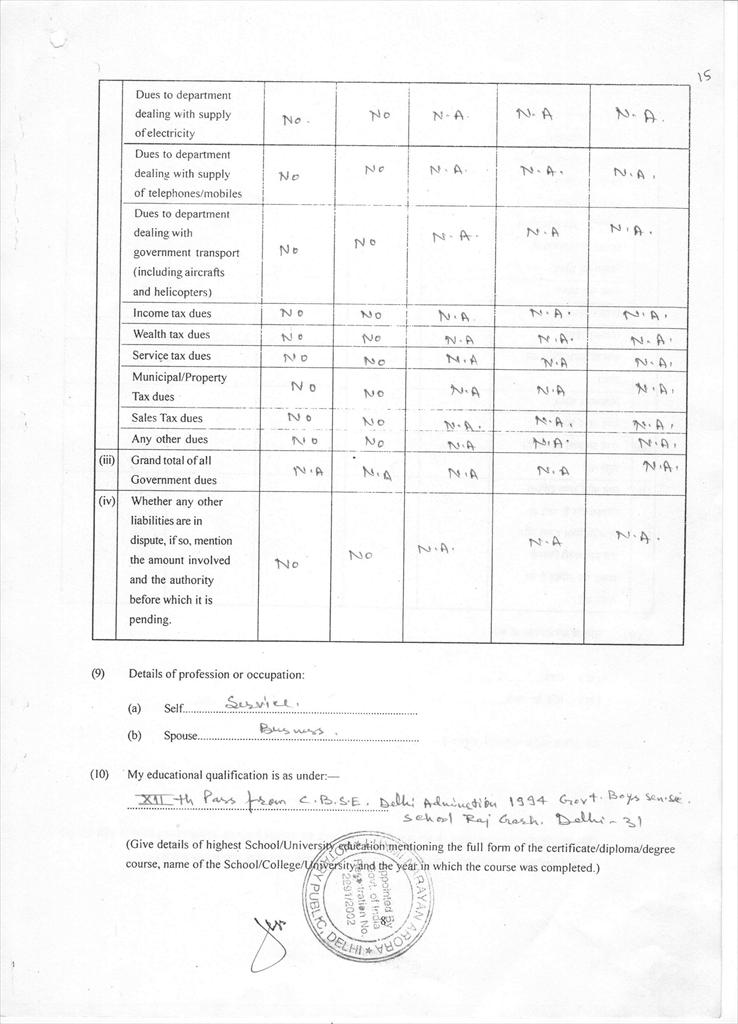 15
Dues to department
dealing with supply No. No N.A. N.A N.A.
of electricity
Dues to department
dealing with supply No No N.A. N.A. N.A.
of telephones/mobiles
Dues to department
dealing with
government transport No No N.A. N.A N.A.
(including aircrafts
and helicopters)
Income tax dues No No N.A N.A. N.A.
Wealth tax dues No No N.A N.A. N.A.
Service tax dues No No N.A N.A N.A.
Municipal/Property
Tax dues No No N.A N.A N.A.
Sales Tax dues No No N.A. N.A. N.A.
Any other dues No No N.A N.A. N.A.
(iii) Grand total of all
Government dues N.A N.A N.A N.A N.A.
(iv) Whether any other
liabilities are in
dispute, if so, mention
the amount involved No No N.A. N.A N.A.
and the authority
before which it is
pending.
(9) Details of profession or occupation:
(a) Self Service.
(b) Spouse Business.
(10) My educational qualification is as under:—
XII th Pass from C.B.S.E. Delhi 1994 Govt. Boys Sen. se.
School Raj Delhi - 31
(Give details of highest School/University education mentioning the full form of the certificate/diploma/degree
course, name of the School/College/University and the year in which the course was completed.)
NARAYAN ARORA
NOTARY PUBLIC, DELHI
Appointed by
Govt. of India
Registration No.
2291/2002
8